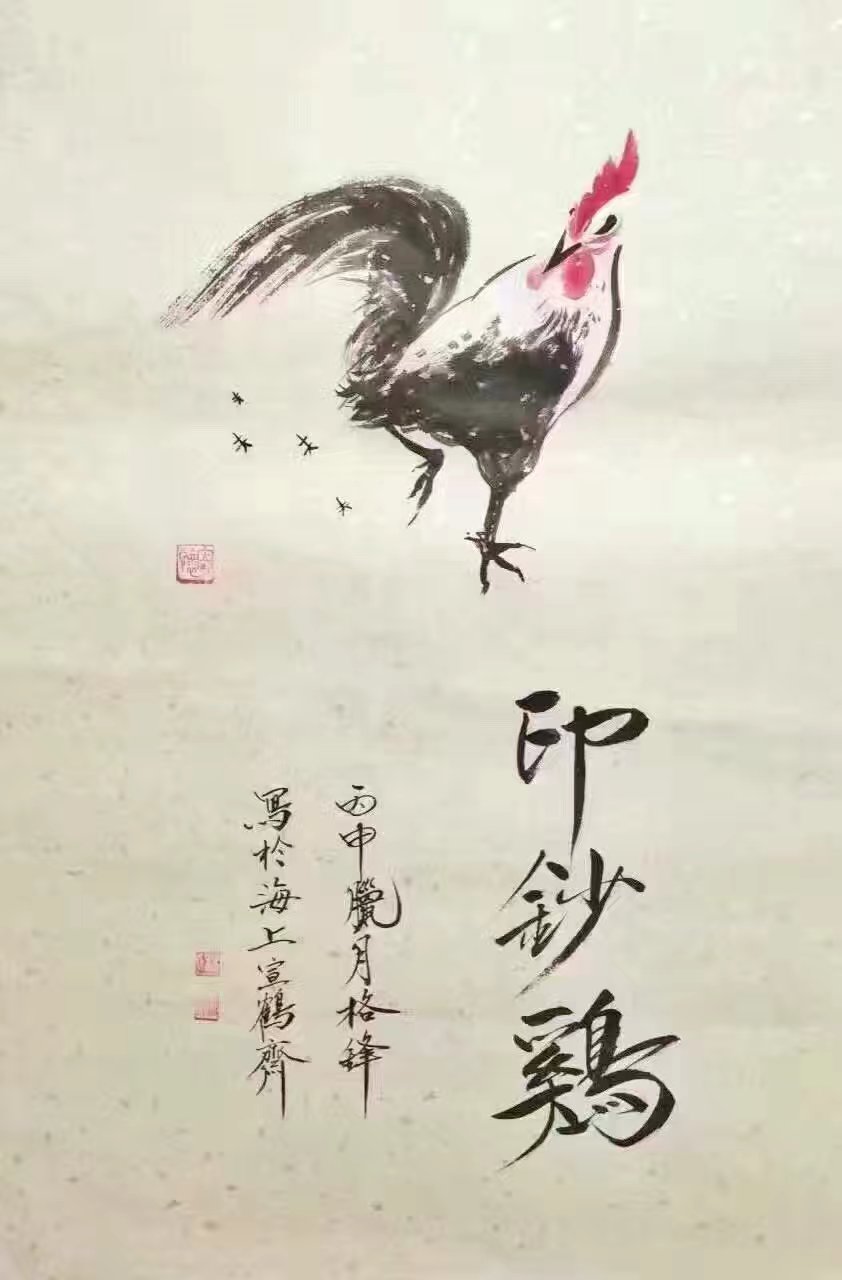 印鈔鷄
丙申臘月格鋒
寫於海上宣鶴齋